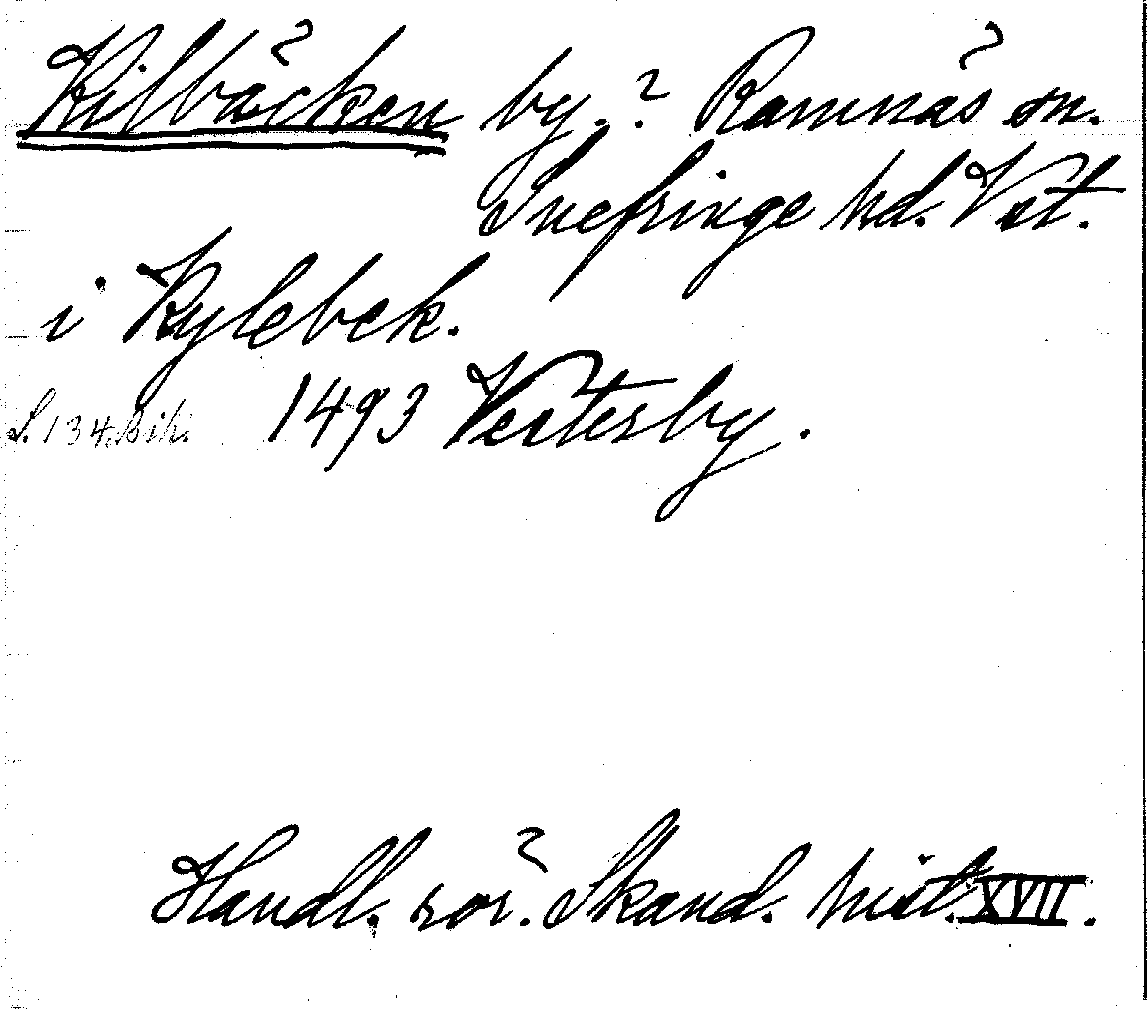 Kilbäcken by.? Ramnäs sn.
Snefringe hd. Vst.
i Kylebek.
S. 134. Bih. 1493 Vestersby.
Handl. rör. Skand. hist. XVII.